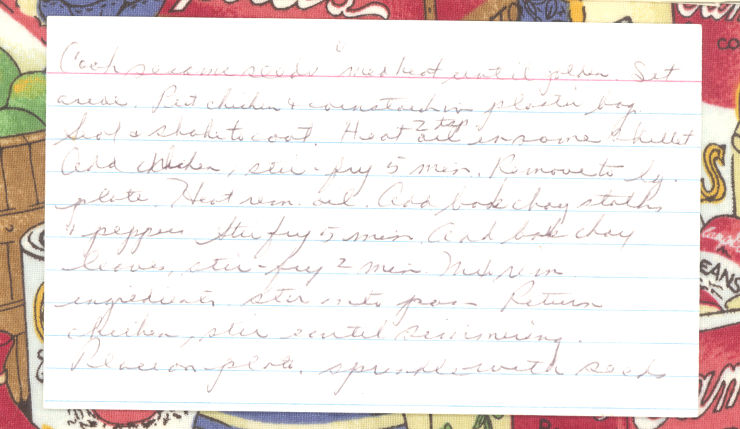 Cook sesame seeds med heat until golden. Set
aside. Put chicken & cornstarch in plastic bag
Seal & shake to coat. Heat 2 tsp oil in same skillet
Add chicken, stir-fry 5 min. Remove to lg.
plate. Heat rem. oil. Add bok choy stalks
& peppers Stir fry 5 min. Add bok choy
leaves, stir-fry 2 min. Mix rem
ingredients stir into pan Return
chicken, stir until simmering.
Place on plate, sprinkle with seeds
EANS